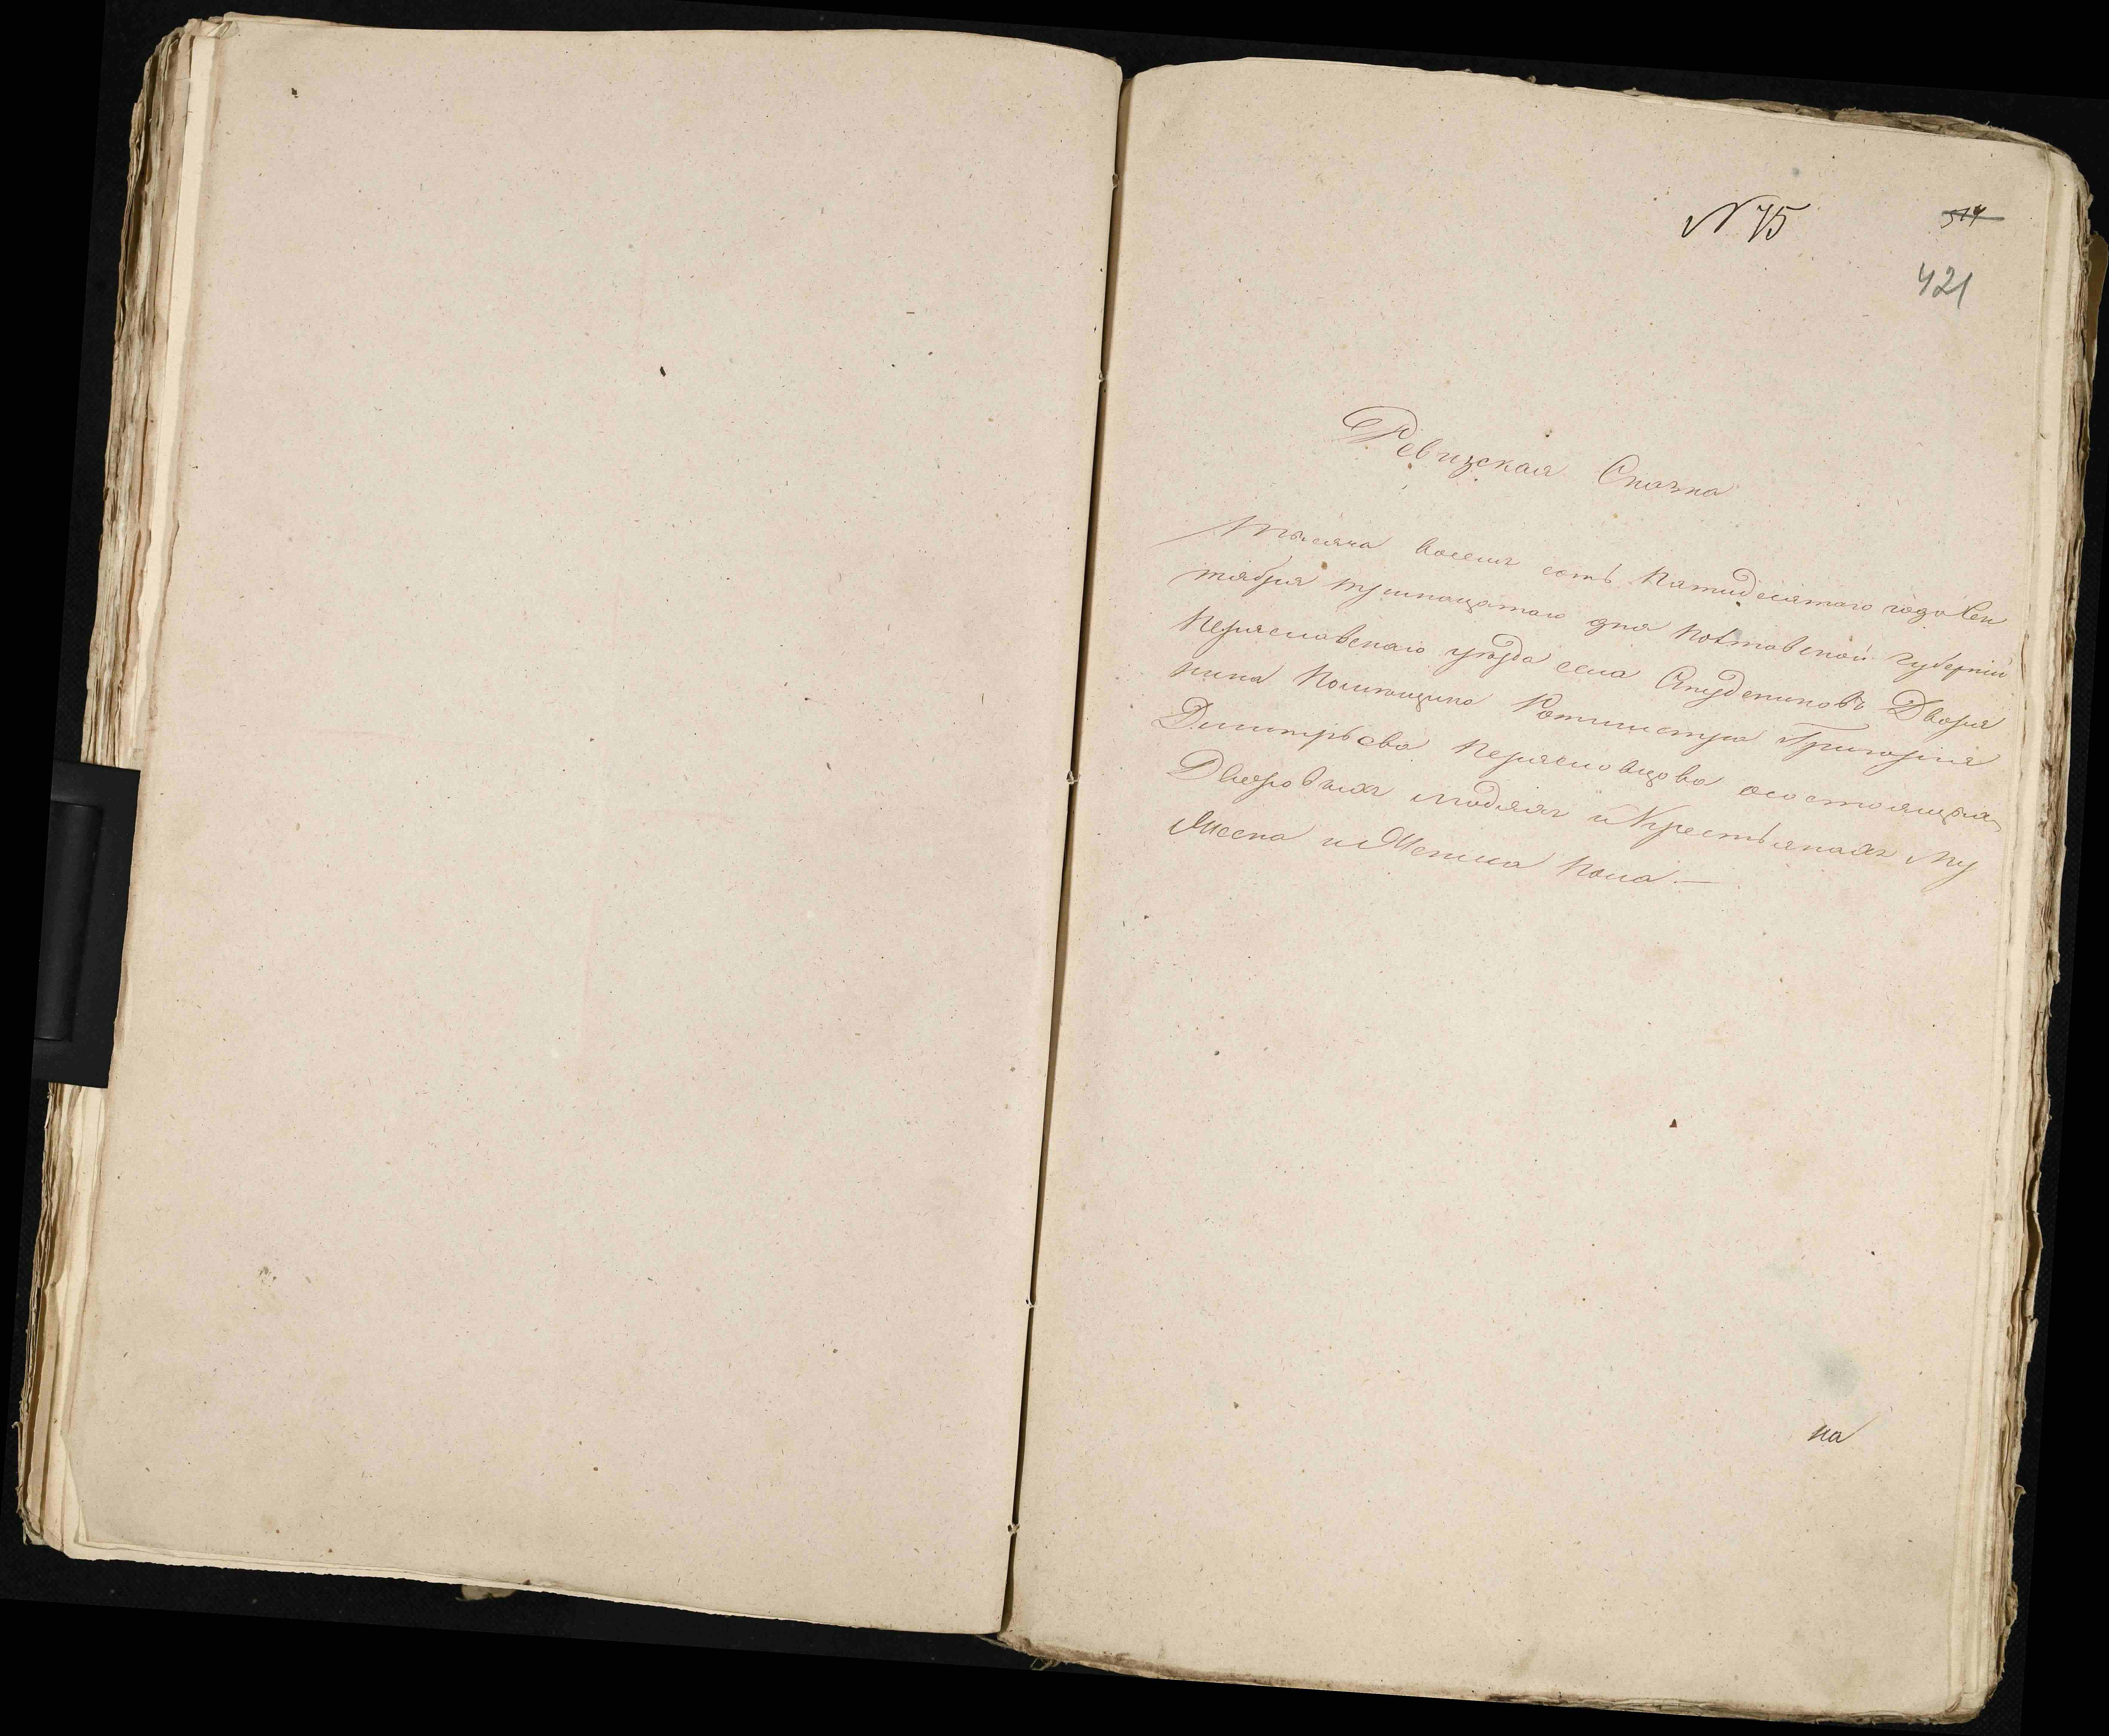 N 75
514
421
Ревизская Сказка
Тысяча восемь сотъ Пятидесятого года Сен
тября тринацатого дня Полтавской губернии
Переяславского уезда села Студениковъ Дворя
нина Помещика Ротмистра Григория
Димитрьева Переяславцова осостоящихъ
Дворовыхъ людяхъ и Крестьянахъ му
жеска и Женска пола —
на